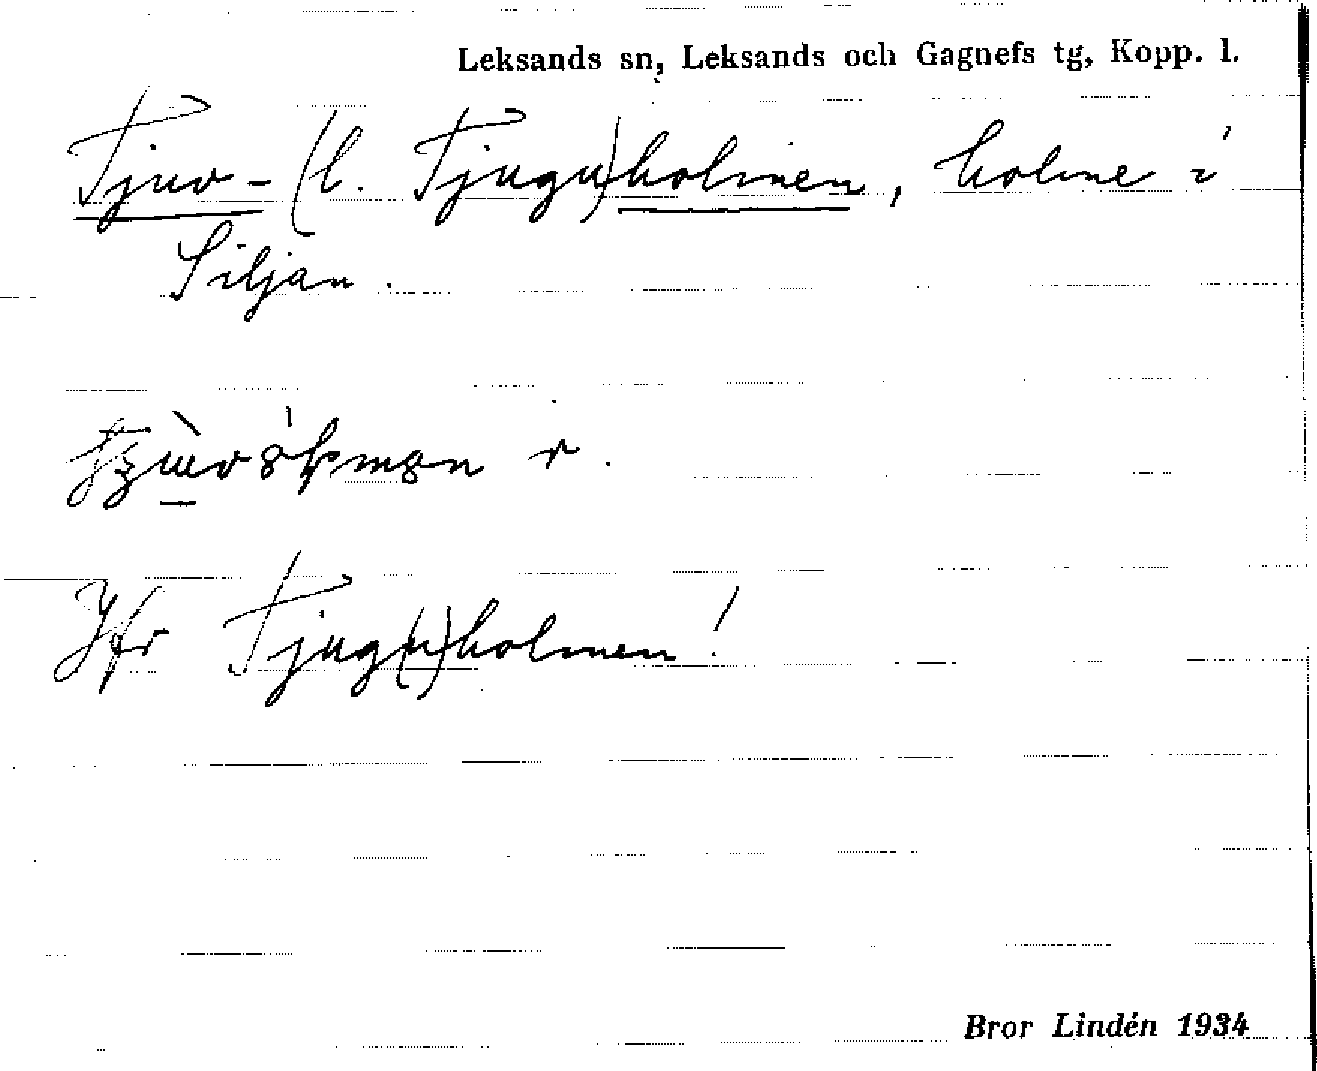 Leksands sn, Leksands och Gagnefs tg, Kopp. l.
Tjuv- (l. Tjugu)holmen, holme i
Siljan.
r.
Jfr Tjug(u)holmen!
Bror Lindén 1934